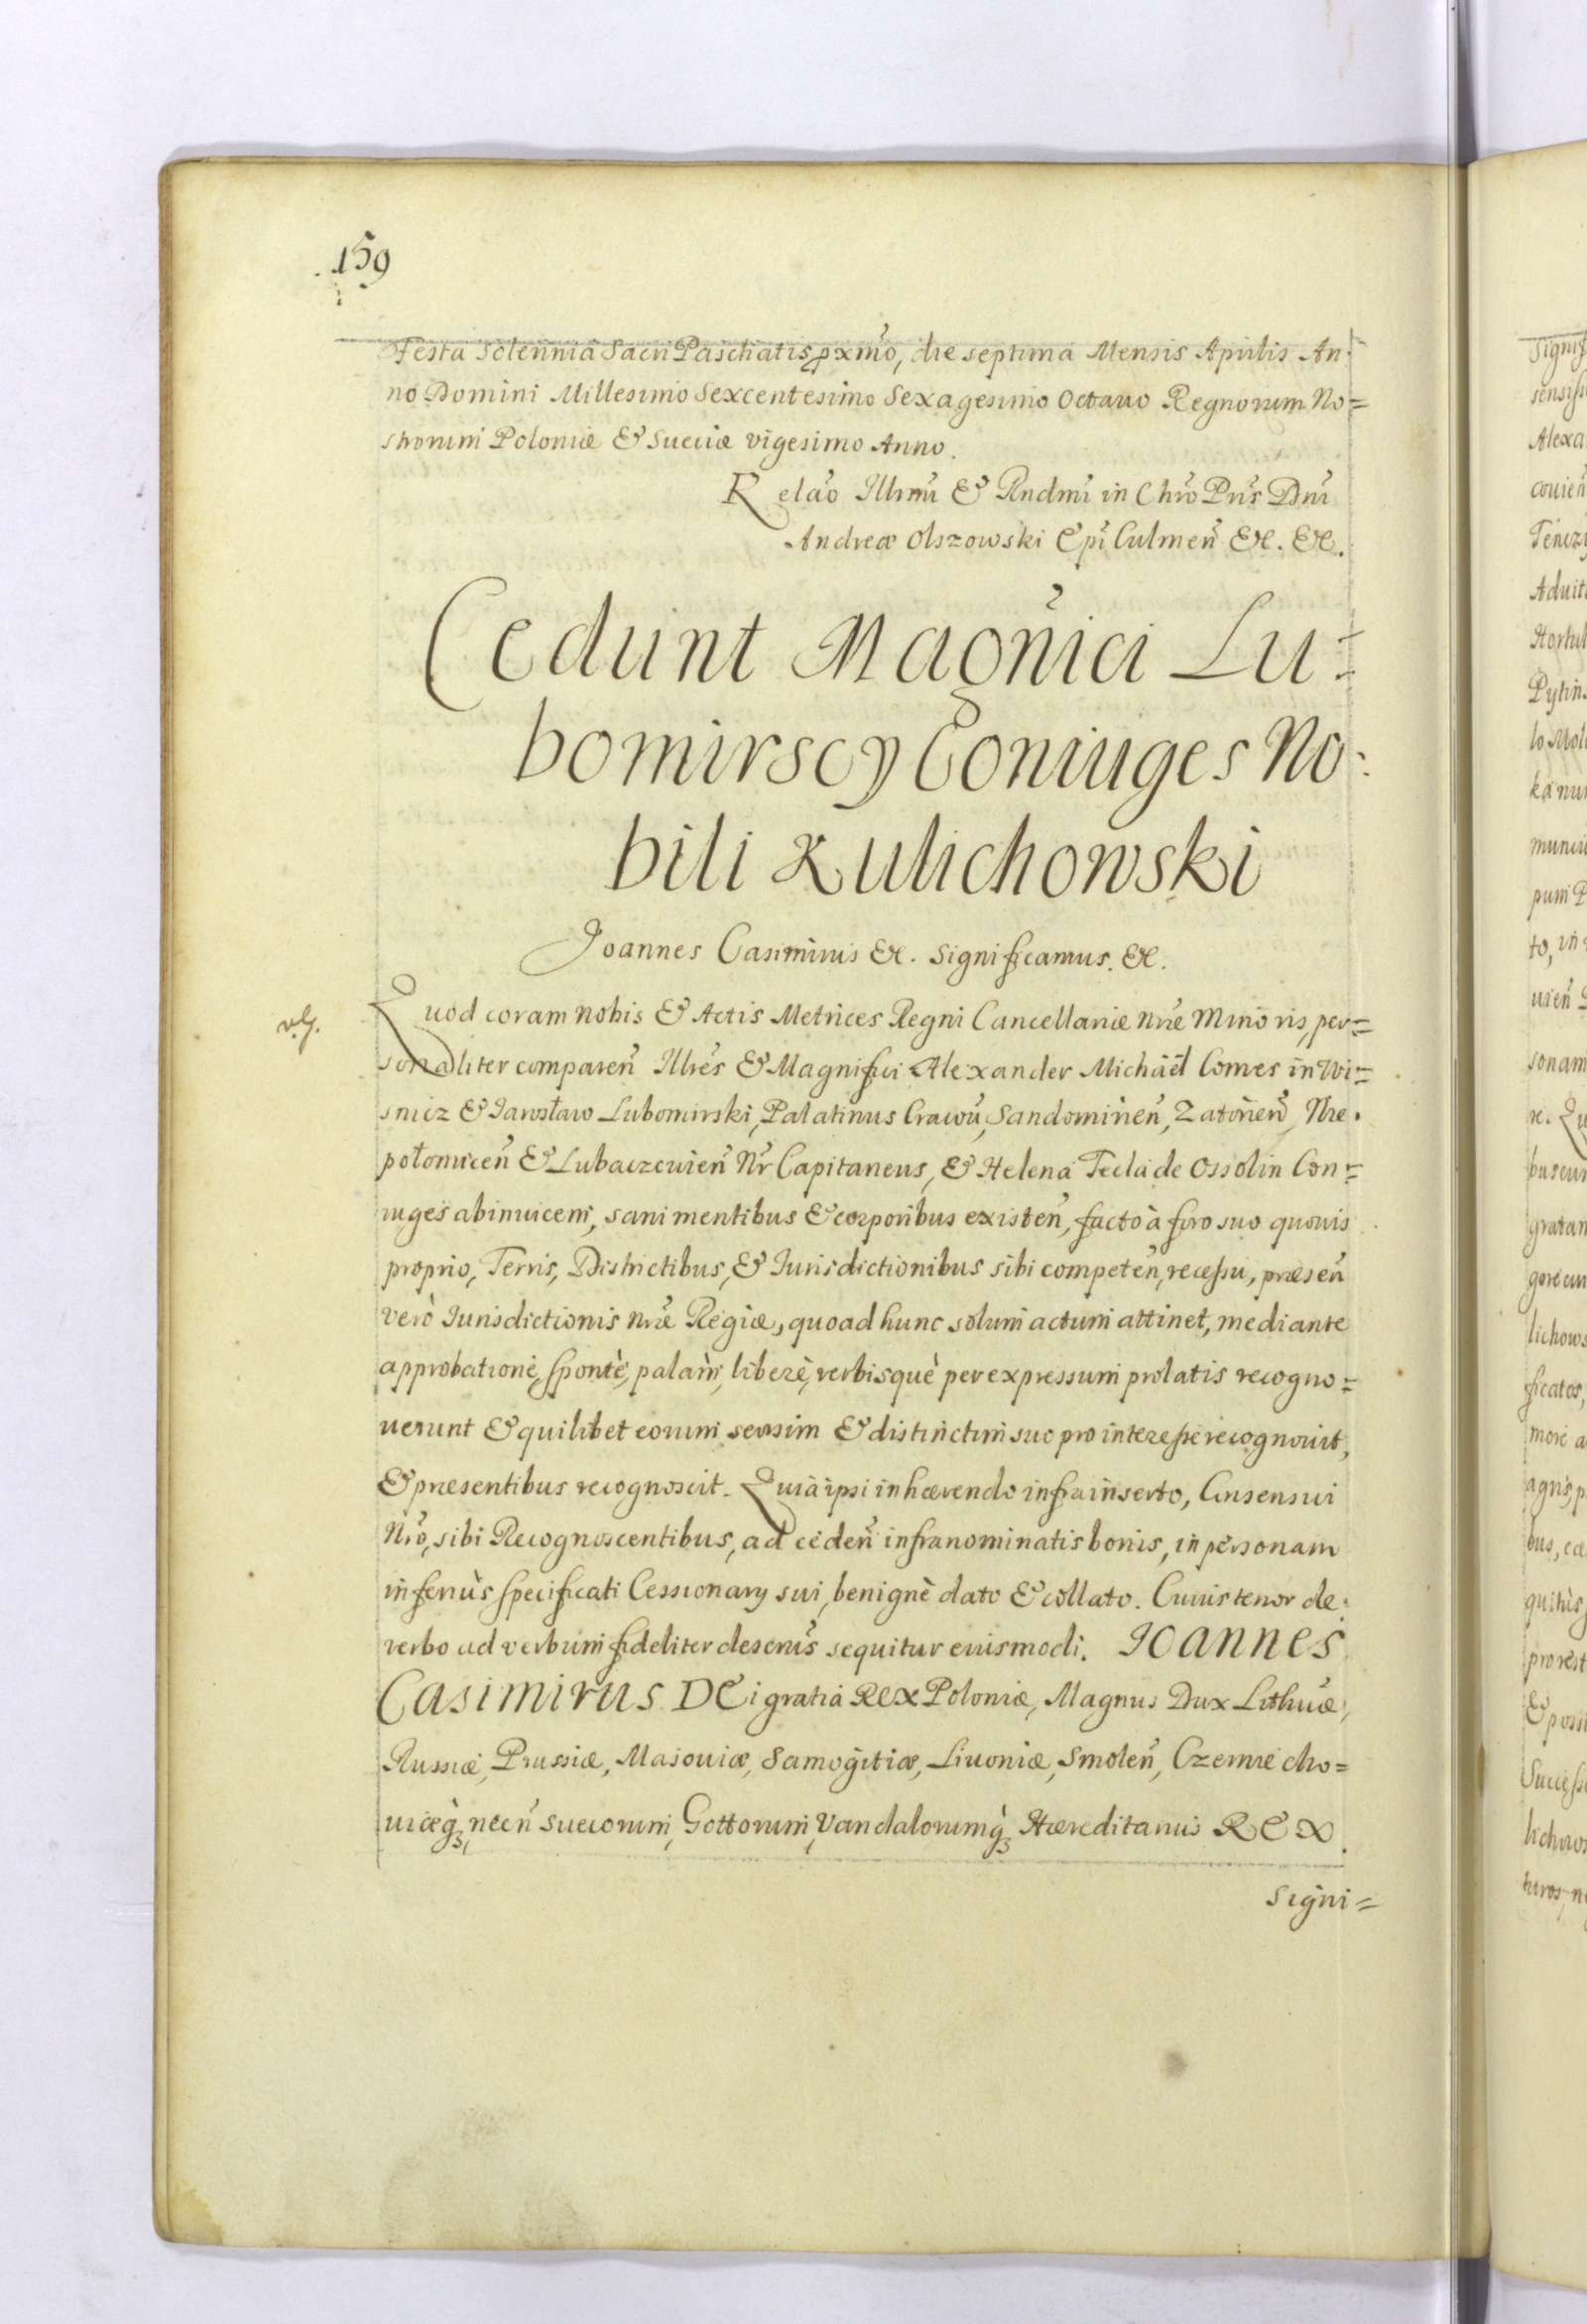 159
Festa Solennia Sacri Paschatis pxmo, die septima Mensis Aprilis An:
no Domini Millesimo Sexcentesimo Sexagesimo Octauo Regnorum No=
strorum Poloniæ & Sueciæ vigesimo Anno.
Relao Illrmi & Rndmi in Chro Pris Dni
Andreæ Olszowski Epi Culmen &c. &c.
Cedunt Magnici Lu=
bomirscy Coniuges No=
bili Kulichowski
Joannes Casimirus &c. Significamus. &c.
Quod coram nobis & Actis Metrices Regni Cancellariæ nræ Minoris, per=
sonaliter comparen Illres & Magnifici Alexander Michäel Comes in Wi=
snicz & Jarosław Lubomirski, Palatinus Cracou, Sandomirien, Zatorien, Nie.
połomicen & Lubaczouien Nr Capitaneus, & Helena Tecla de Ossolin Con=
iuges abinuicem, sani mentibus & corporibus existen, facto à foro suo quouis
proprio, Terris, Districtibus, & Jurisdictionibus sibi competen, recessu, præsen
verò Jurisdictionis nræ Regiæ, quoad hunc solum actum attinet, mediante
approbatione, spontè, palàm, liberè, verbisquè per expressum prolatis recogno=
uerunt & quilibet eorum seorsim & distinctim suo pro interesse recognouit,
& præsentibus recognoscit. Quia ipsi inhærendo infra inserto, Consensui
Nro, sibi Recognoscentibus, ad ceden infranominatis bonis, in personam
inferiùs specificati Cessionary sui, benignè dato & collato. Cuius tenor de
verbo ad verbum fideliter descrius sequitur eiusmodi. Joannes
Casimirus DEi gratia REX Poloniæ, Magnus Dux Lithuæ,
Russiæ, Prussiæ, Masouiæ, Samogitiæ, Liuoniæ, Smolen, Czernie cho=
uiæq, necn Sueiorum, Gottorum, Vandalorumq Hæreditarius REX.
Signi=